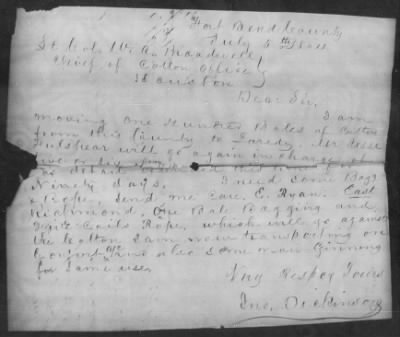 Fort Bend County
July 5th 1864
Lt. Col. W. A. Broadwell
Chief of Cotton Office
Houston
Dear Sir,
I am
moving One Hundred Bales of Cotton
from this County to Laredo. Mr Jesse
will go again in charge of
five or six
detail
Ninety days. I need some Bagg
& Rope, send me care E. Ryan. East
Richmond. One Bale Bagging and
Coils Rope, which will go against
the Cotton I am now transporting on
and also some now Ginning
for same use.
Very Respey Yours
Jno. Dickinson